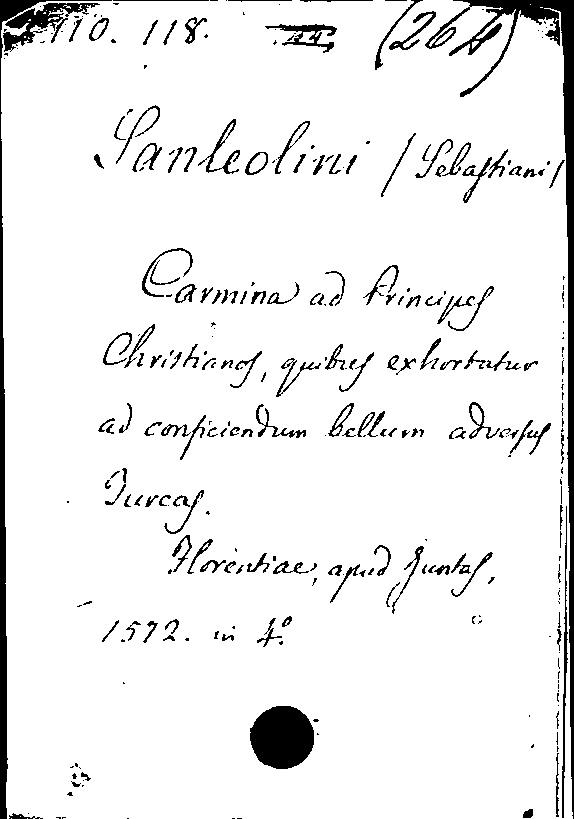 110. 118. (264)
Sanleolini /Sebastiani/
Carmina ad Principes
Christianos, quibus exhortatur
ad conficiendum bellum adversus
Turcas.
Florentiae, apud Juntas,
1572. in 4°.